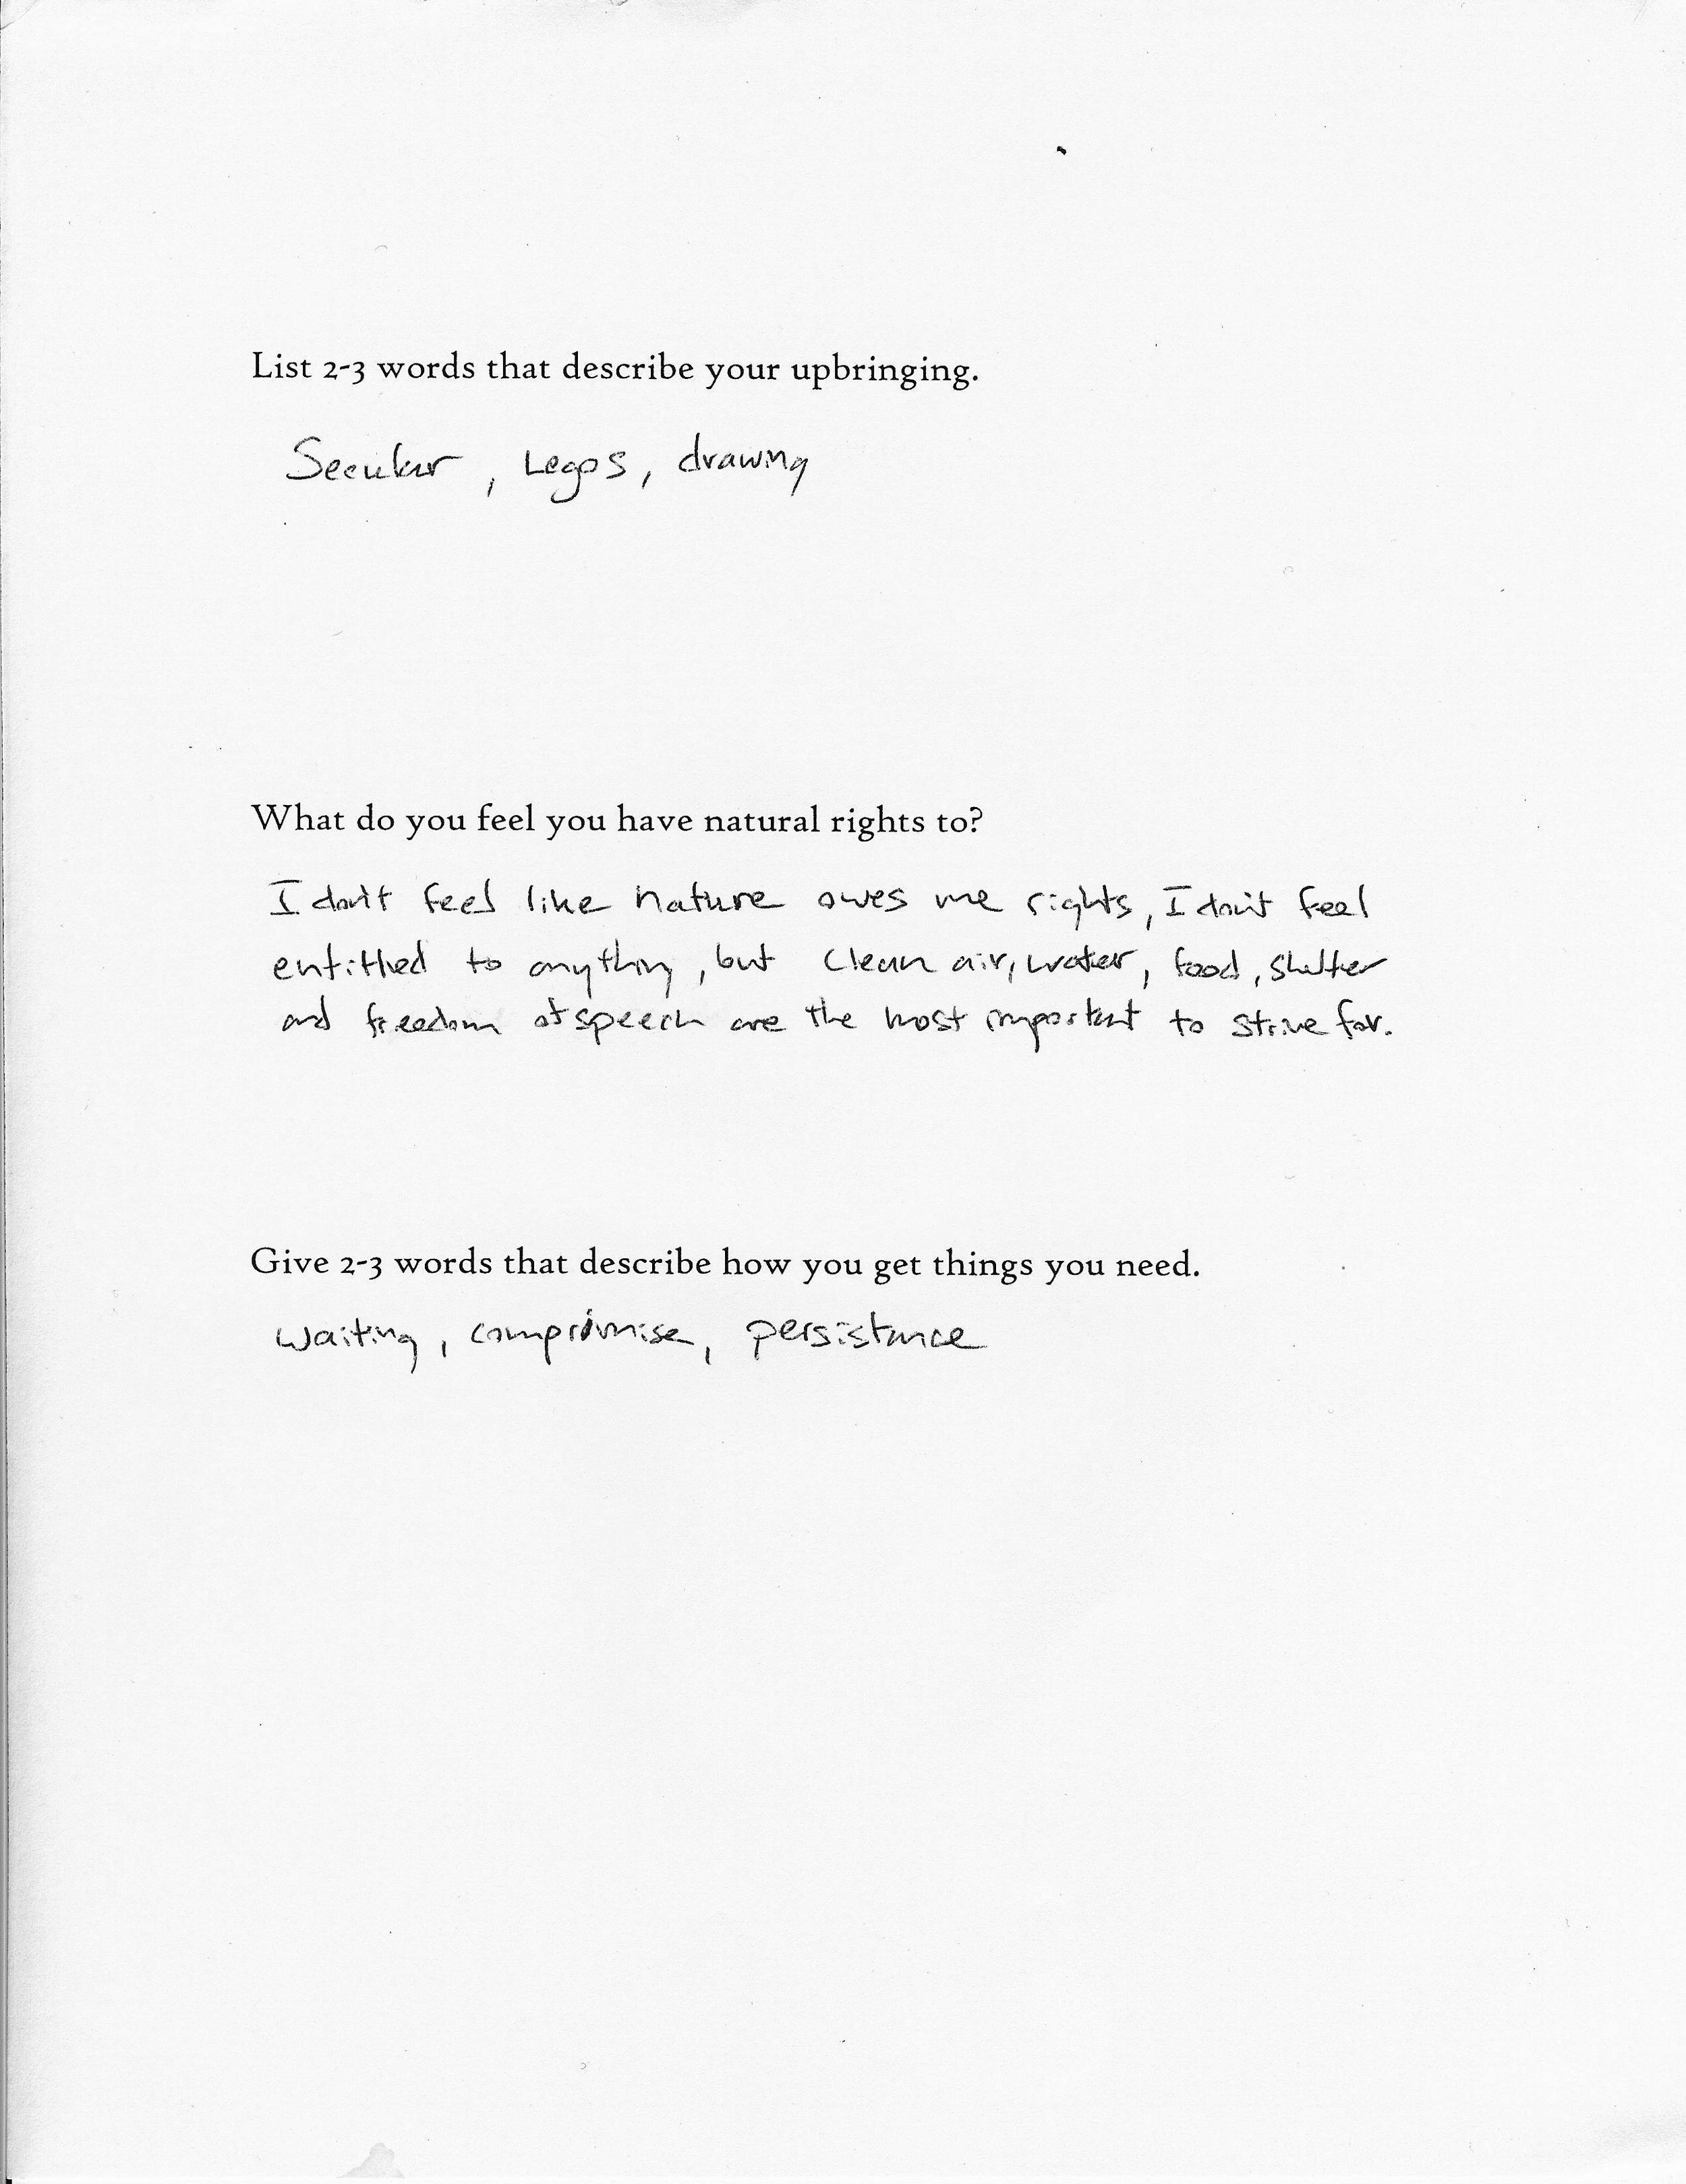 List 2-3 words that describe your upbringing.
Secular, Legos, drawing
What do you feel you have natural rights to?
I don't feel like nature owes me rights, I don't feel
entitlied to anything, but clean air, water, food, shelter
and freedom of speech are the most important to strive for.
Give 2-3 words that describe how you get things you need.
waiting, compromise, persistance